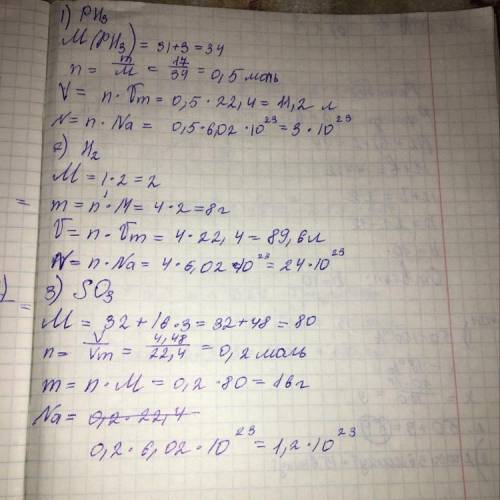 1) PH₃
M(PH₃) = 31+3 = 34
n = m/M = 17/34 = 0,5 моль
V = n · Vm = 0,5 · 22,4 = 11,2 л
N = n · Na = 0,5 · 6,02 · 10²³ = 3 · 10²³
2) H₂
M = 1 · 2 = 2
m = n · M = 4 · 2 = 8г
V = n · Vm = 4 · 22,4 = 89,6л
N = n · Na = 4 · 6,02 · 10²³ = 24 · 10²³
3) SO₃
M = 32 + 16 · 3 = 32 + 48 = 80
n = V/Vm = 4,48/22,4 = 0,2 моль
m = n · M = 0,2 · 80 = 16г
Na = 0,2 · 22,4
0,2 · 6,02 · 10²³ = 1,2 · 10²³